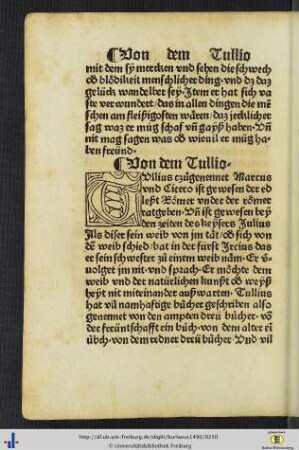 ¶Von dem Tullio
mit dem sy mercken vnd sehen die schwech
ob̃ blödikeit menschlicher ding· vnd dz daz
gelück wandelber sey· Jtem er hat sich va
ste verwundert / das in allen dingen die mē
schen am fleißigosten wären / daz jecklicher
sag waz er müg schaf vñ gayß haben· Vñ
nit mag sagen was ob wieuil er müg ha
ben freünd·
¶Von dem Tullio·
Tullius czůgenennet Marcus
vnd Cicero ist gewesen der ed
leßt Römer vnder der römer
ratgeben· Vñ ist gewesen bey
den zeiten des keysers Julius
Als diser sein weib von jm tät / ob sich von
dē weib schied / bat in der fürst Jrcius das
er sein schwester zů einem weib näm· Er v̈
uolget jm nit· vnd sprach· Er möchte dem
weib vnd der natürlichen kunst ob weyß
heyt nit miteinander außwarten· Tullius
hat vil namhaftige bücher geschriben also
genennet von den ampten dreü bücher· võ
der freüntschafft ein bůch· von dem alter eī
bůch· von dem redner dreü bücher· Vnd vil
http://dl.ub.uni-freiburg.de/diglit/burlaeus1490/0250
© Universitätsbibliothek Freiburg